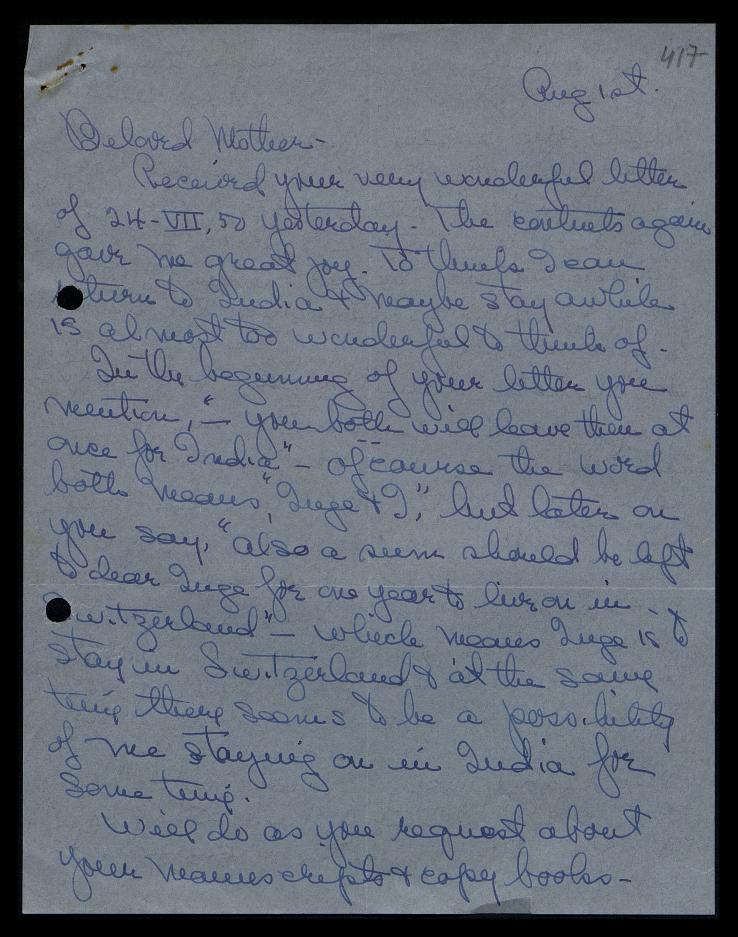 417
Aug 1st.
Beloved Mother-
Received your very wonderful letter
of 24-VII, 50 yesterday. The contents again
gave me great joy. To think I can
return to India & maybe stay awhile
is almost too wonderful to think of.
In the beginning of your letter you
mention, "— you both will leave then at
once for India" — of course the word
both means, "Inge & I", but later on
you say, "also a sum should be left
to dear Inge for one year to live on in
Switzerland" — which means Inge is to
stay in Switzerland & at the same
time there seems to be a possibility
of me staying on in India for
some time.
Will do as you request about
your manuscripts & copy books-